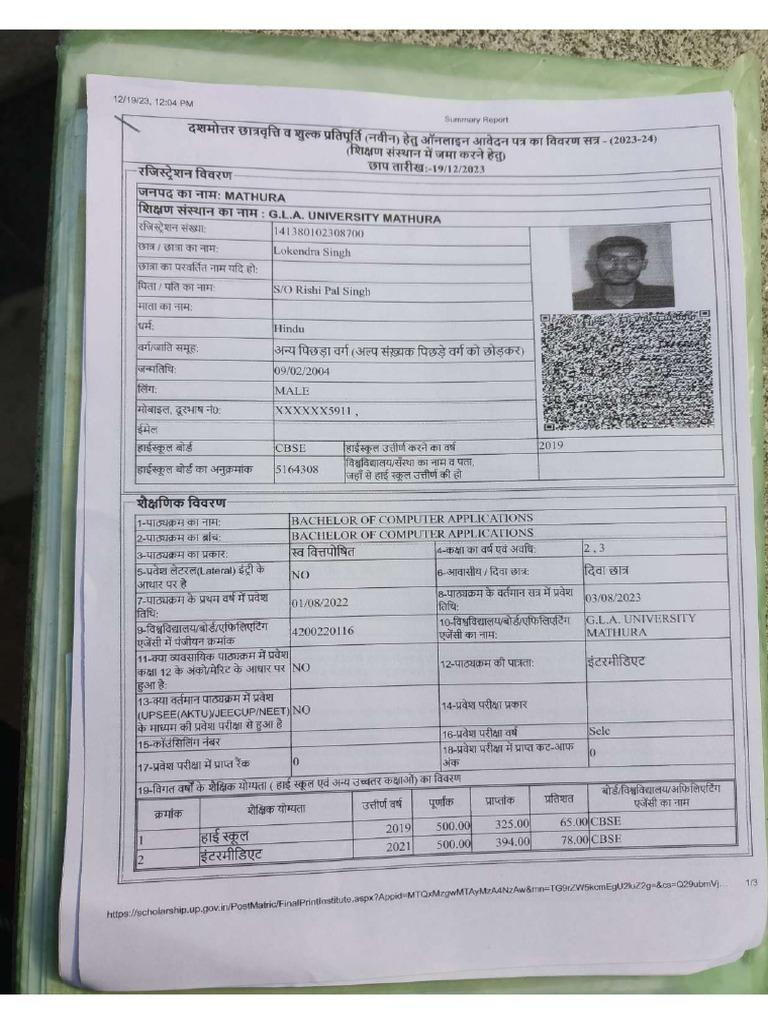 12/19/23, 12:04 PM
Summary Report
दशमोत्तर छात्रवृत्ति व शुल्क प्रतिपूर्ति (नवीन) हेतु ऑनलाइन आवेदन पत्र का विवरण सत्र - (2023-24)
(शिक्षण संस्थान में जमा करने हेतु)
छाप तारीख:-19/12/2023
रजिस्ट्रेशन विवरण
जनपद का नाम: MATHURA
शिक्षण संस्थान का नाम : G.L.A. UNIVERSITY MATHURA
रजिस्ट्रेशन संख्या: 141380102308700
छात्र / छात्रा का नाम: Lokendra Singh
छात्रा का परवर्तित नाम यदि हो:
पिता / पति का नाम: S/O Rishi Pal Singh
माता का नाम:
धर्म: Hindu
वर्ग/जाति समूह: अन्य पिछड़ा वर्ग (अल्प संख्यक पिछड़े वर्ग को छोड़कर)
जन्मतिथि: 09/02/2004
लिंग: MALE
मोबाइल, दूरभाष नं0: XXXXXX5911 ,
ईमेल
हाईस्कूल बोर्ड CBSE हाईस्कूल उत्तीर्ण करने का वर्ष 2019
हाईस्कूल बोर्ड का अनुक्रमांक 5164308 विश्वविद्यालय/संस्था का नाम व पता,
जहाँ से हाई स्कूल उत्तीर्ण की हो
शैक्षणिक विवरण
1-पाठ्यक्रम का नाम: BACHELOR OF COMPUTER APPLICATIONS
2-पाठ्यक्रम का ब्रांच: BACHELOR OF COMPUTER APPLICATIONS
3-पाठ्यक्रम का प्रकार: स्व वित्तपोषित 4-कक्षा का वर्ष एवं अवधि: 2 , 3
5-प्रवेश लेटरल(Lateral) इंट्री के
आधार पर है NO 6-आवासीय / दिवा छात्र: दिवा छात्र
7-पाठ्यक्रम के प्रथम वर्ष में प्रवेश
तिथि: 01/08/2022 8-पाठ्यक्रम के वर्तमान सत्र में प्रवेश
तिथि: 03/08/2023
9-विश्वविद्यालय/बोर्ड/एफिलिएटिंग
एजेंसी में पंजीयन क्रमांक 4200220116 10-विश्वविद्यालय/बोर्ड/एफिलिएटिंग
एजेंसी का नाम: G.L.A. UNIVERSITY
MATHURA
11-क्या व्यवसायिक पाठ्यक्रम में प्रवेश
कक्षा 12 के अंको/मेरिट के आधार पर
हुआ है: NO 12-पाठ्यक्रम की पात्रता: इंटरमीडिएट
13-क्या वर्तमान पाठ्यक्रम में प्रवेश
(UPSEE(AKTU)/JEECUP/NEET)
के माध्यम की प्रवेश परीक्षा से हुआ है NO 14-प्रवेश परीक्षा प्रकार
15-कॉउंसिलिंग नंबर 16-प्रवेश परीक्षा वर्ष Selc
17-प्रवेश परीक्षा में प्राप्त रैंक 0 18-प्रवेश परीक्षा में प्राप्त कट-आफ
अंक 0
19-विगत वर्षों के शैक्षिक योग्यता ( हाई स्कूल एवं अन्य उच्चतर कक्षाओं) का विवरण
क्रमांक शैक्षिक योग्यता उत्तीर्ण वर्ष पूर्णांक प्राप्तांक प्रतिशत बोर्ड/विश्वविद्यालय/अफिलिएटिंग
एजेंसी का नाम
1 हाई स्कूल 2019 500.00 325.00 65.00 CBSE
2 इंटरमीडिएट 2021 500.00 394.00 78.00 CBSE
1/3